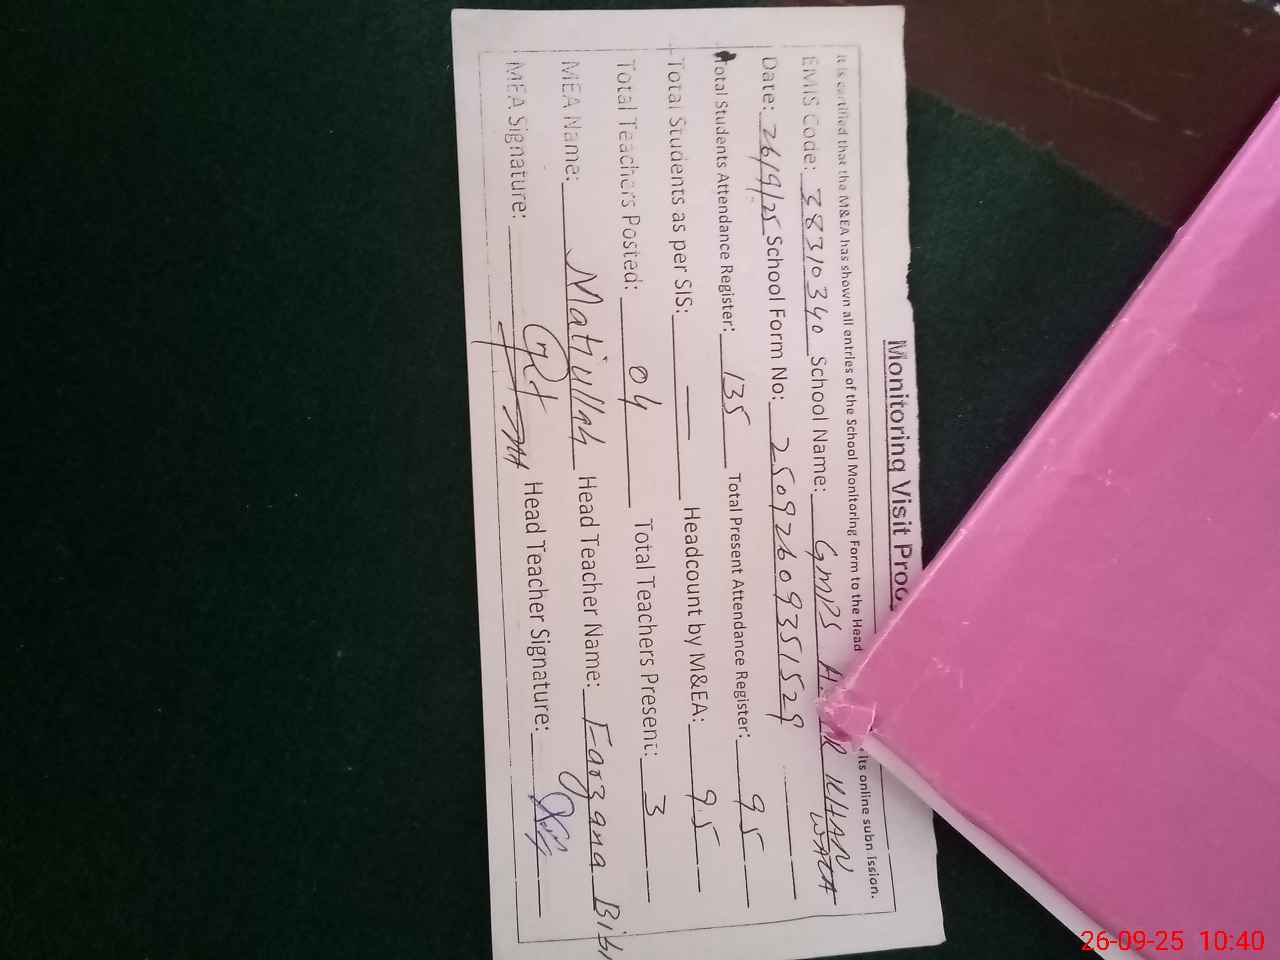 Monitoring Visit
It is certified that the M&EA has shown all entries of the School Monitoring Form to the Head its online submission.
EMIS Code: 38310340 School Name: GMPS KHAN WALA
Date: 26/9/25 School Form No: 25092609351529
Total Students Attendance Register: 135 Total Present Attendance Register: 95
Total Students as per SIS: — Headcount by M&EA: 95
Total Teachers Posted: 04 Total Teachers Present: 3
MEA Name: Matiullah Head Teacher Name: Farzana Bibi
MEA Signature: Head Teacher Signature:
26-09-25 10:40